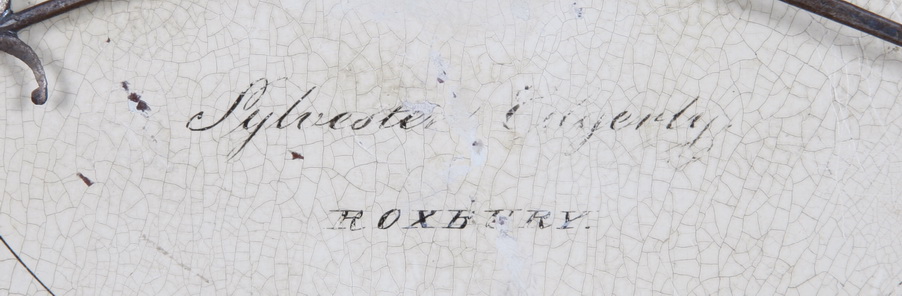 Sylvester Edgerly.
ROXBURY.